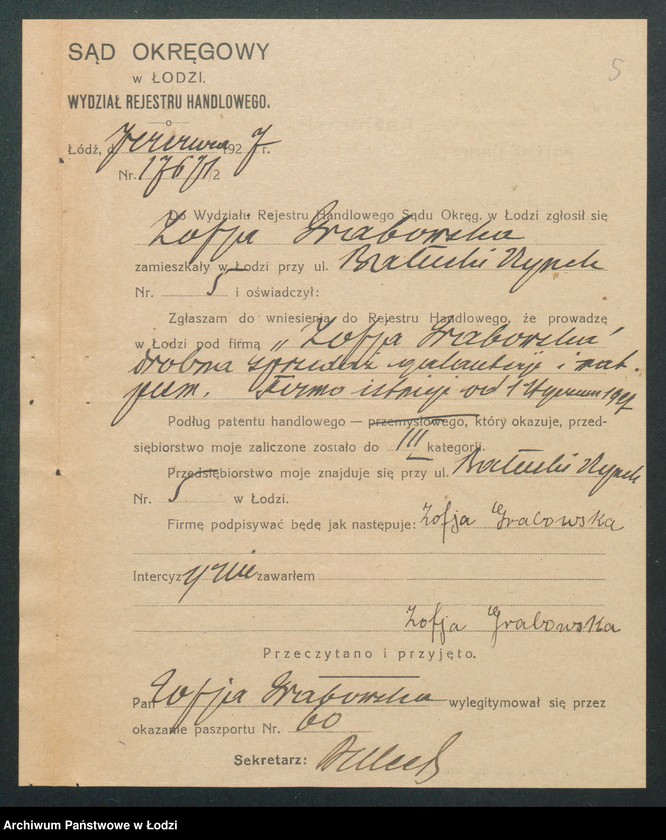 SĄD OKRĘGOWY
w ŁODZI.
WYDZIAŁ REJESTRU HANDLOWEGO.
5
Łódź, d. 7 czerwca 1927 r.
Nr. 17671/2
Do Wydziału Rejestru Handlowego Sądu Okręg. w Łodzi zgłosił się
Zofja Grabowska
zamieszkały w Łodzi przy ul. Bałucki Rynek
Nr. 5 i oświadczył:
Zgłaszam do wniesienia do Rejestru Handlowego, że prowadzę
w Łodzi pod firmą „Zofja Grabowska"
drobna sprzedaż galanterji i mat.
piśm. Firma istnieje od 1 stycznia 1927
Podług patentu handlowego — przemysłowego, który okazuje, przed-
siębiorstwo moje zaliczone zostało do III kategorji.
Przedsiębiorstwo moje znajduje się przy ul. Bałucki Rynek
Nr. 5 w Łodzi.
Firmę podpisywać będę jak następuje: Zofja Grabowska
Intercyzy nie zawarłem
Zofja Grabowska
Przeczytano i przyjęto.
Pan Zofja Grabowska wylegitymował się przez
okazanie paszportu Nr. 60
Sekretarz:
Archiwum Państwowe w Łodzi